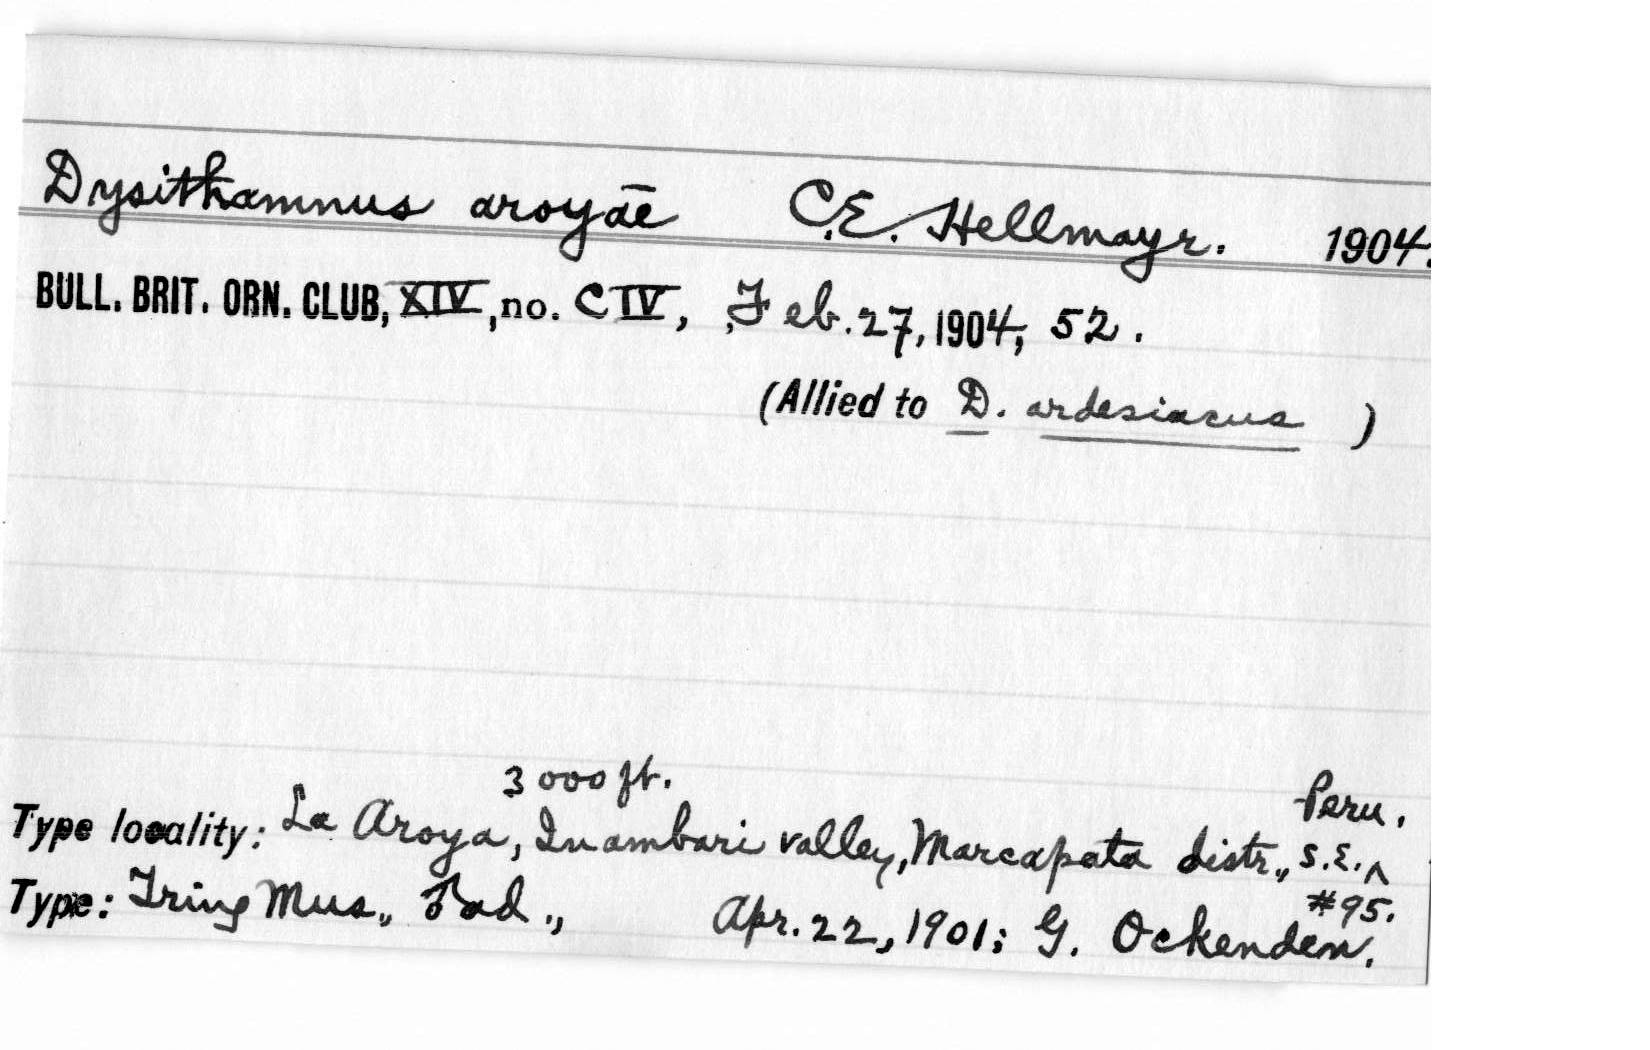 Dysithamnus aroyae C.E. Hellmayr. 1904.
BULL. BRIT. ORN. CLUB, XIV, no. CIV, Feb. 27, 1904, 52.
(Allied to D. ardesiacus )
3000 ft.
Peru.
Type locality: La Aroya, Inambari valley, Marcapata distr., S.E. ^
#95.
Type: Tring Mus., ad., Apr. 22, 1901; G. Ockenden.